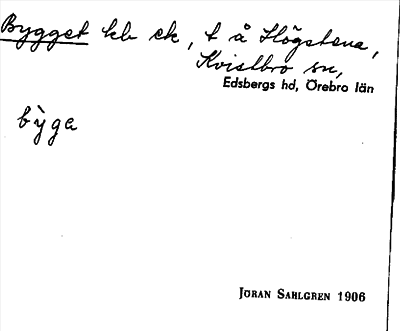 Bygget hb ek, t å Högstena,
Kvistbro sn,
Edsbergs hd, Örebro län
bỳga
JÖRAN SAHLGREN 1906